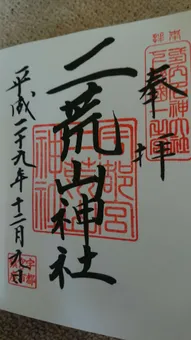 奉拝
二荒山神社
平成二十九年十二月九日
宇都宮